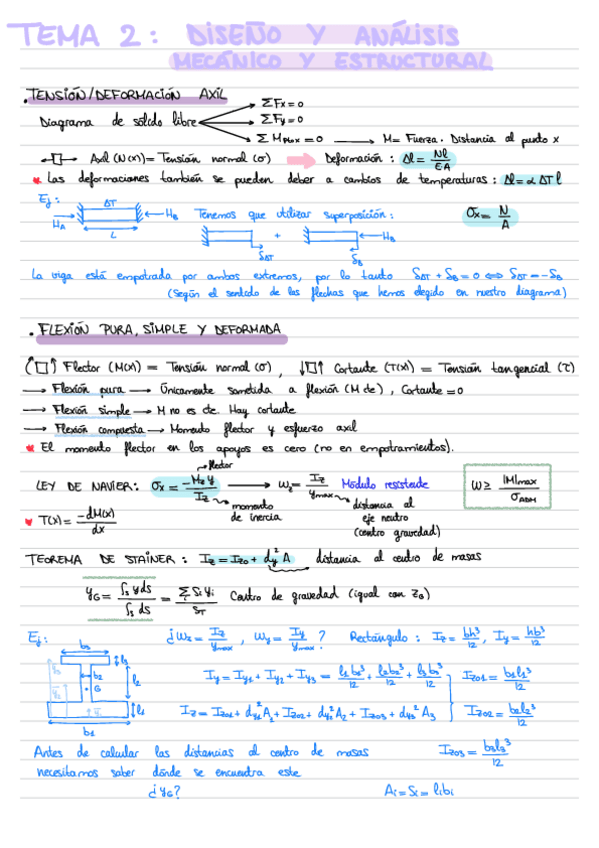 TEMA 2: DISEÑO Y ANÁLISIS
MECÁNICO Y ESTRUCTURAL
. TENSIÓN/DEFORMACIÓN AXIL
ΣFx = 0
Diagrama de sólido libre ΣFy = 0
ΣMpto x = 0 → M = Fuerza · Distancia al punto x
Axil (N(x)) = Tensión normal (σ) → Deformación: Δl = Nl/EA
* Las deformaciones también se pueden deber a cambios de temperaturas: Δl = α ΔT l
Ej: ΔT
HA L HB Tenemos que utilizar superposición: σx = N/A
+ HB
δΔT δB
La viga está empotrada por ambos extremos, por lo tanto δΔT + δB = 0 ⇔ δΔT = -δB
(Según el sentido de las flechas que hemos elegido en nuestro diagrama)
. FLEXIÓN PURA, SIMPLE Y DEFORMADA
Flector (M(x)) = Tensión normal (σ), Cortante (T(x)) = Tensión tangencial (τ)
→ Flexión pura → Únicamente sometida a flexión (M cte), Cortante = 0
→ Flexión simple → M no es cte. Hay cortante
→ Flexión compuesta → Momento flector y esfuerzo axil
* El momento flector en los apoyos es cero (no en empotramientos).
flector
LEY DE NAVIER: σx = -Mz y/Iz → Wz = Iz/ymax Módulo resistente W ≥ |M|max/σADM
momento de inercia
distancia al eje neutro (centro gravedad)
* T(x) = -dM(x)/dx
TEOREMA DE STAINER: Iz = Izo + dy² A distancia al centro de masas
yG = ∫s y ds/∫s ds = Σ Si yi/ST Centro de gravedad (igual con zG)
Ej: ¿Wz = Iz/ymax, Wy = Iy/ymax? Rectángulo: Iz = bh³/12, Iy = hb³/12
b3 l3
b2 l2
G
l1
b1
Iy = Iy1 + Iy2 + Iy3 = l1 b1³/12 + l2 b2³/12 + l3 b3³/12 Izo1 = b1 l1³/12
Iz = Izo1 + dy1² A1 + Izo2 + dy2² A2 + Izo3 + dy3² A3 Izo2 = b2 l2³/12
Antes de calcular las distancias al centro de masas Izo3 = b3 l3³/12
necesitamos saber dónde se encuentra este
¿yG? Ai = Si = li bi